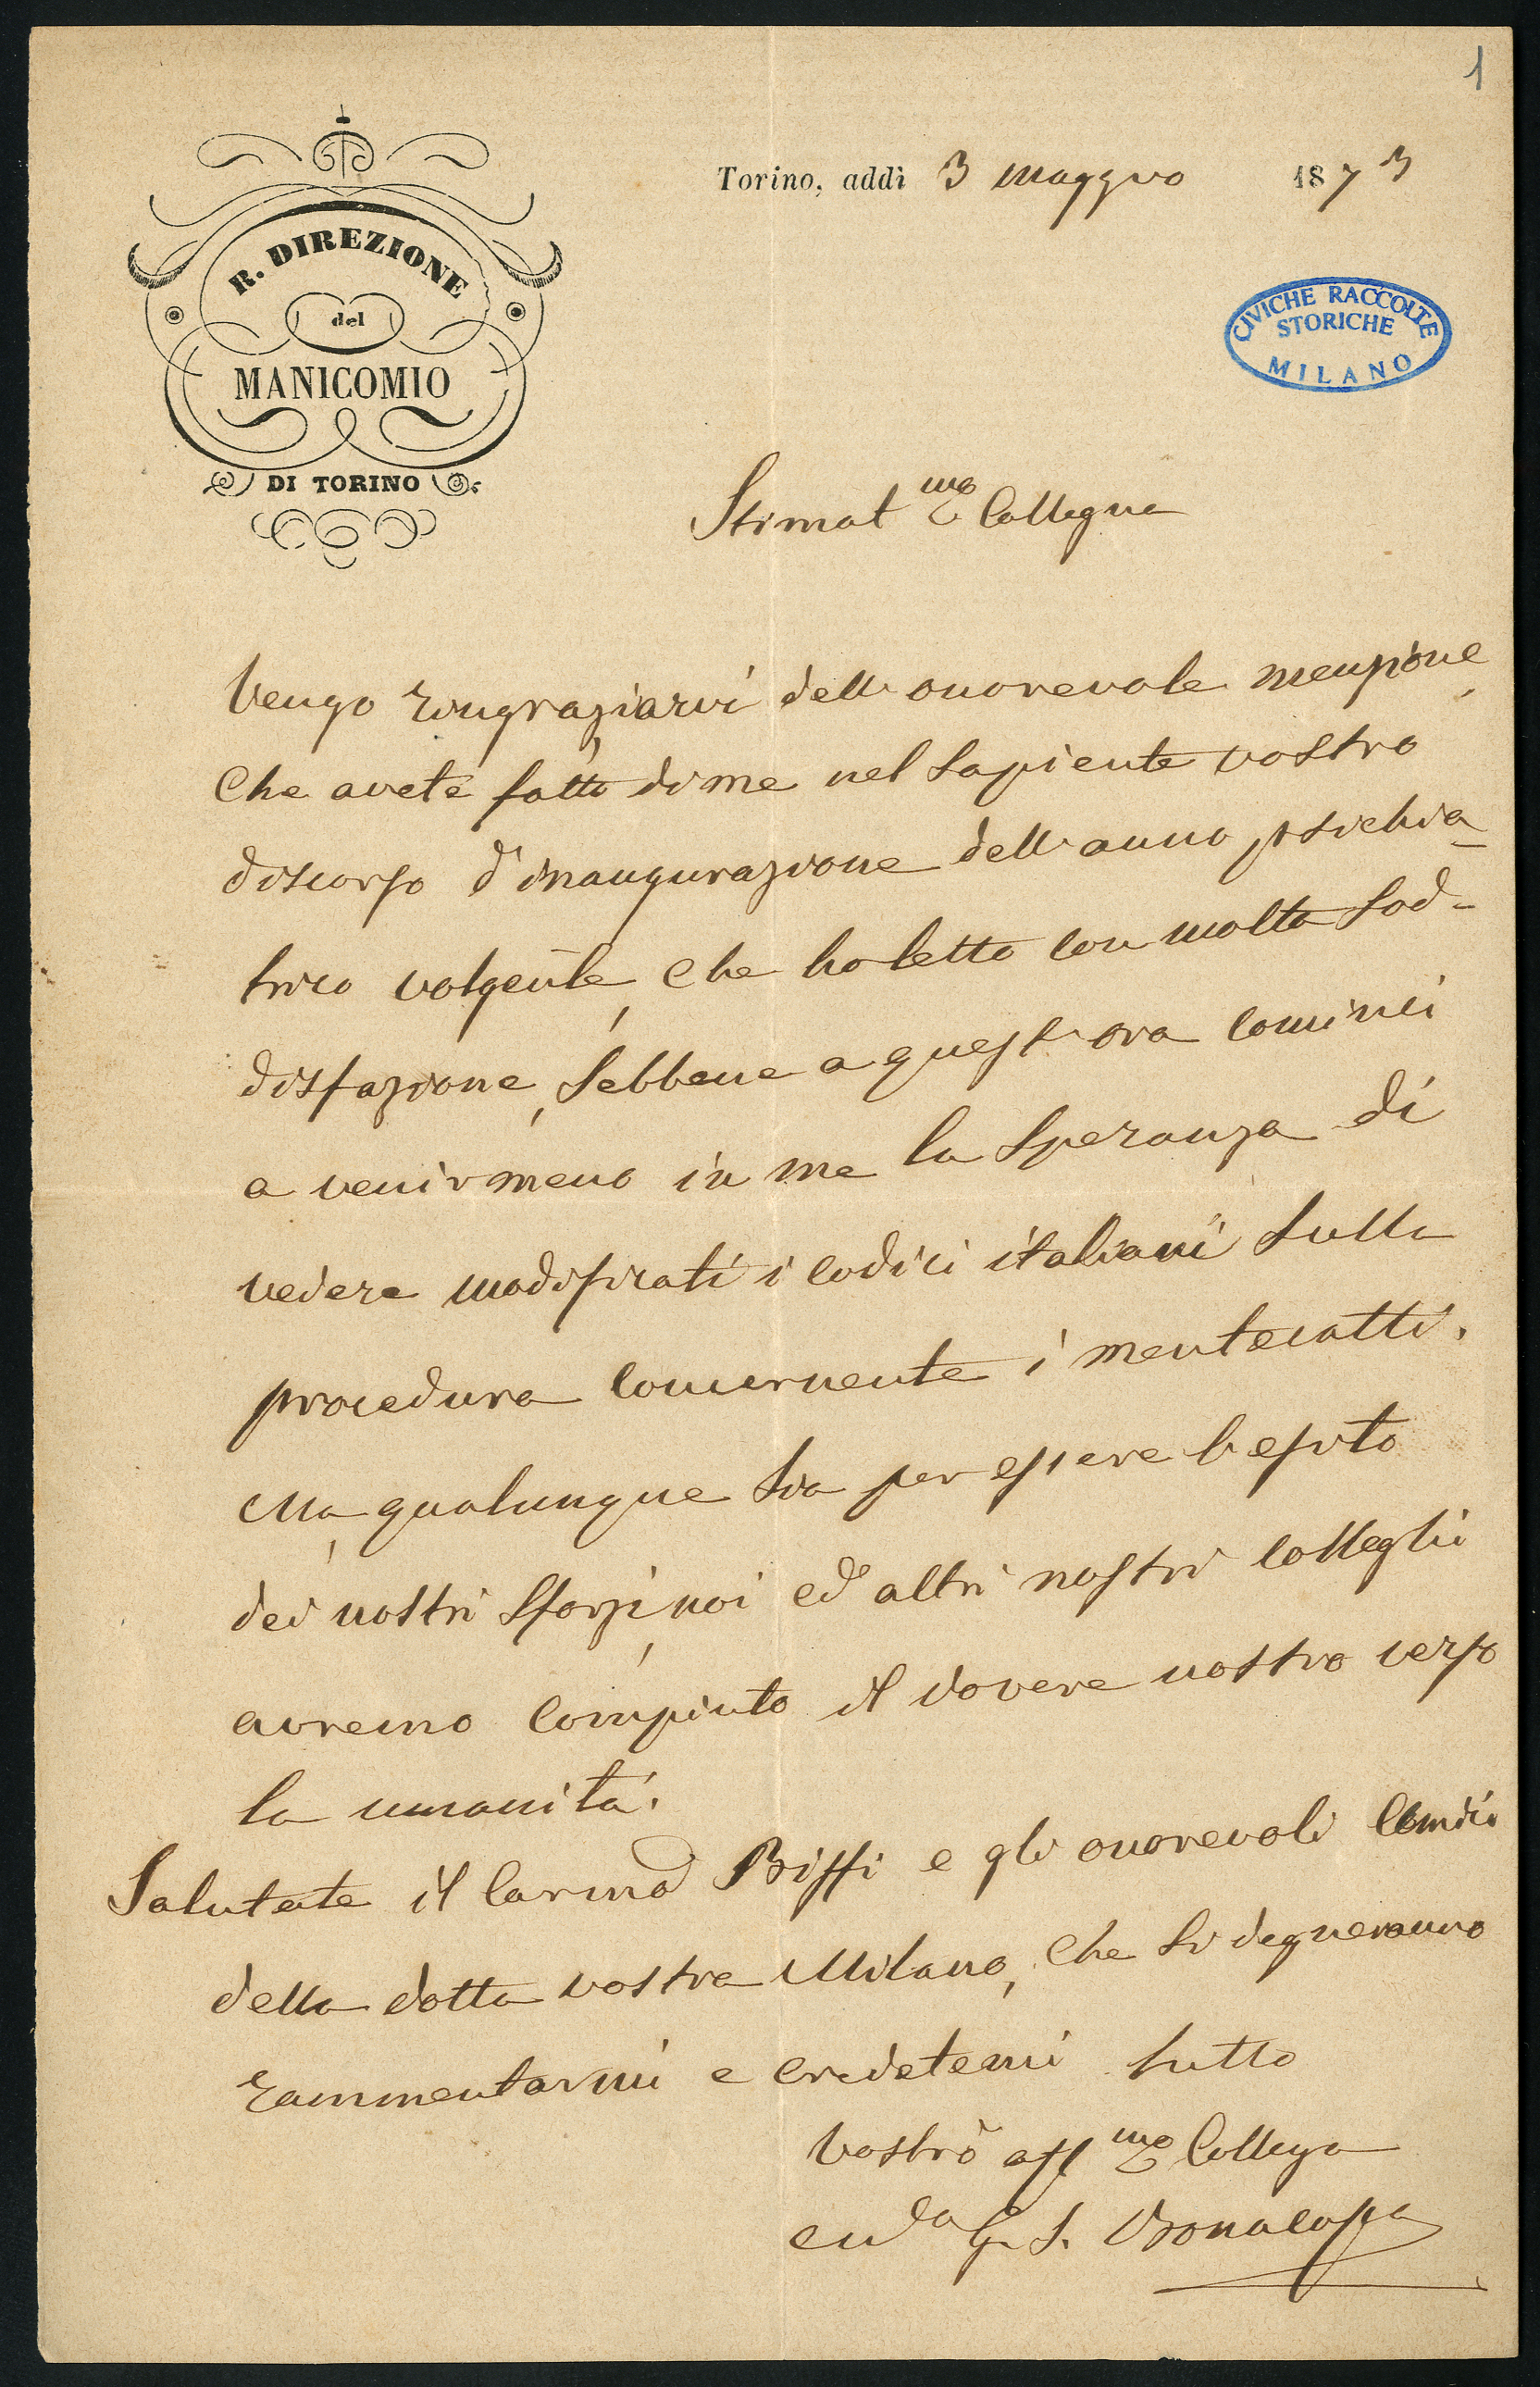 1
Torino, addì 3 maggio 1873
R. DIREZIONE
del
MANICOMIO
DI TORINO
CIVICHE RACCOLTE
STORICHE
MILANO
Stimat mo Collegua
Vengo ringraziarvi dell'onorevole menzione,
che avete fatto di me nel sapiente vostro
discorso d'inaugurazione dell'anno psichia-
trico volgente, che ho letto con molta sod-
disfazione, sebbene a quest'ora cominci
a venir meno in me la speranza di
vedere modificati i codici italiani sulla
procedura concernente i mentecatti.
Ma, qualunque sia per essere l'esito
dei nostri sforzi, noi ed altri nostri colleghi
avremo compiuto il dovere nostro verso
la umanità.
Salutate il carmo Biffi e gli onorevoli
della dotta vostra Milano, che si degneranno
rammentarmi e credetemi tutto
vostro aff mo Collega
G. S. Bonacossa